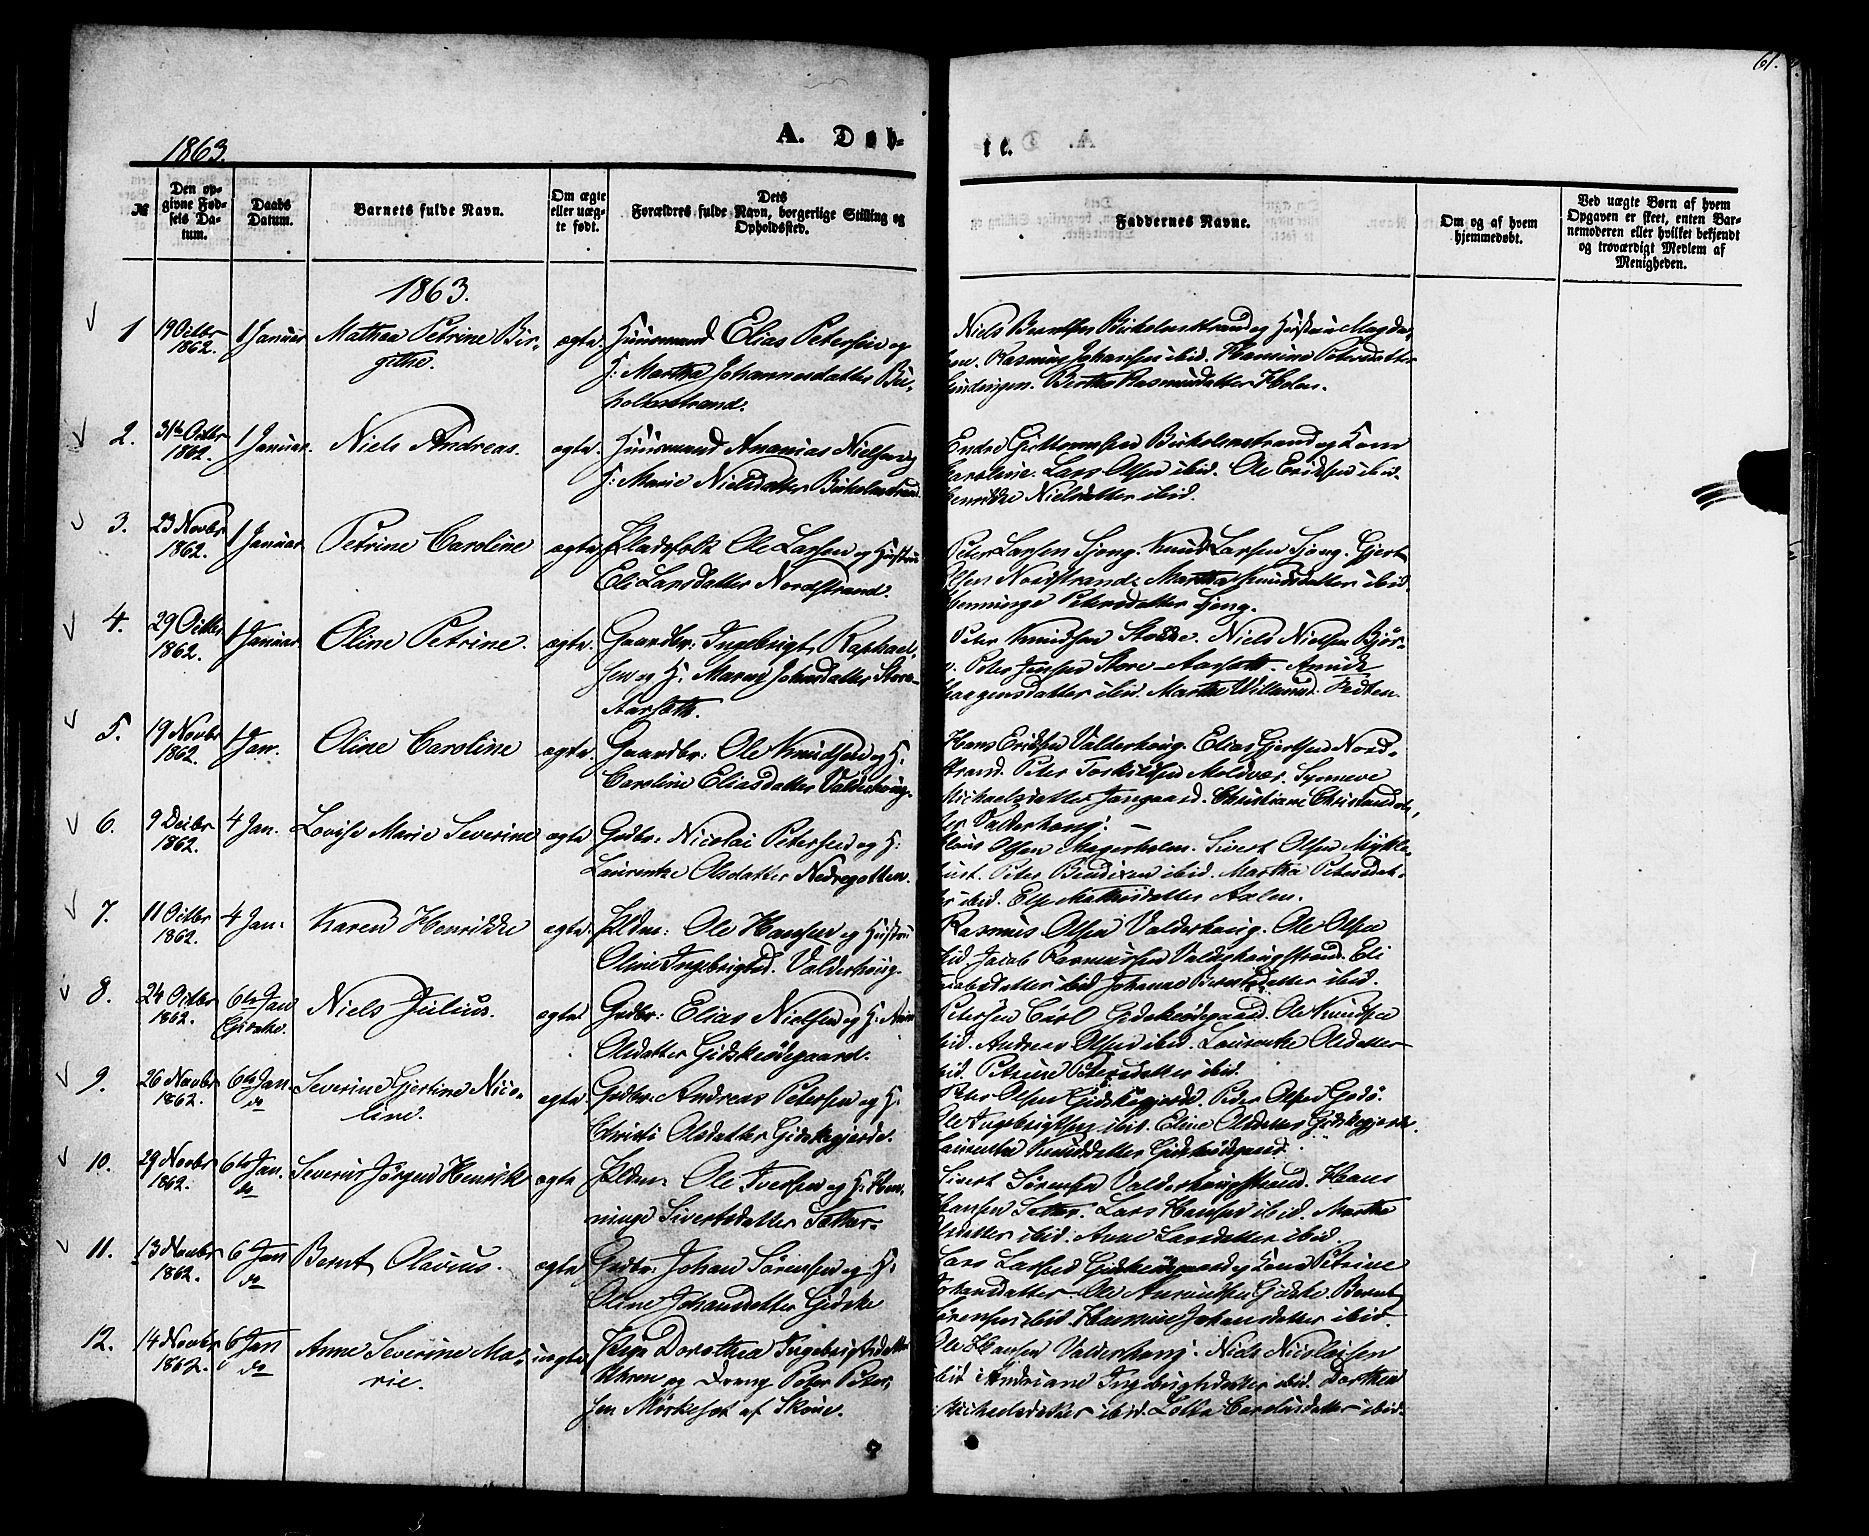 61.
1863.
A. Døb-
te.
№
Den op-
givne Fød-
sels Da-
tum.
Daabs
Datum.
Barnets fulde Navn.
Om ægte
eller uæg-
te født.
Dets
Forældres fulde Navn, borgerlige Stilling og
Opholdssted.
Faddernes Navne.
Om og af hvem
hjemmedøbt.
Ved uægte Børn af hvem
Opgaven er skeet, enten Bar-
nemoderen eller hvilket bekjendt
og troværdigt Medlem af
Menigheden.
1863.
1 19 Octbr 1862. 1 Januar Mathea Petrine Bir-
githe. ægte. Huusmand Elias Petersen og
H: Martha Johannesdatter Bir-
holmstrand.
Niels Berntsen Birkholmstrand og Hustru Magda-
Rasmus Johansen ibid. Hansine Petersdatter
Berthe Rasmusdatter Holen.
2. 31te Octbr 1862. 1 Januar. Niels Andreas. ægte. Huusmand Ananias Nielsen og
H: Marie Nielsdatter Birkholmstrand
Endre Guttormsen Birkholmstrand og Kone
Caroline. Lars Olsen ibid. Ole Eriksen ibid.
Henrikke Nielsdatter ibid.
3. 23 Novbr 1862. 1 Januar Petrine Caroline ægte Pladsfolk Ole Larsen og Hustru
Eli Larsdatter Nordstrand.
Peter Larsen Sjong. Knud Larsen Sjong. Gjert
Olsen Nordstrand. Martha Knudsdatter ibid.
Henninge Petersdatter Sjong.
4. 29 Octbr 1862. 1 Januar. Oline Petrine. ægte. Gaardbr: Ingebrigt Raphael-
sen og H: Maren Johnsdatter Store-
Aarsæth.
Peter Knudsen Niels Nielsen
Peter Jensen Store-Aarsæth.
ibid. Marthe
5. 19 Novbr 1862. 1 Jan. Oline Caroline ægte. Gaardbr: Ole Knudsen og H:
Caroline Eliasdatter Valderhoug.
Hans Eriksen Valderhoug. Elias Gjertsen Nord-
strand. Peter Torkilsen Moldvær. Synneve
Michaelsdatter Jangaard. Christiane Christiansdat-
ter Valderhoug.
6. 9 Decbr 1862. 4 Jan. Lovise Marie Severine ægte Gdbr: Nicolai Petersen og H:
Laurentze Olsdatter Nedregotten.
Claus Olsen Magerholm. Sivert Olsen Mykle-
bust. Peter Bendixen ibid. Martha Petersdat-
ter ibid. Else Mathisdatter Axlen.
7. 11 Octbr 1862. 4 Jan. Karen Henrikke ægte. Pldm: Ole Hansen og Hustru
Oline Ingebrigtsd. Valderhoug.
Rasmus Olsen Valderhoug. Ole Olsen
ibid Jacob Rasmussen Valderhougstrand. Eli
Jacobsdatter ibid Johanne Berntsdatter ibid.
8. 24 Octbr 1862. 6te Jan Giske. Niels Julius. ægte Gdbr: Elias Nielsen og H: Anne
Olsdatter Gidskeødegaard.
Petersen Carl Gidskeødegaard. Ole Knudsen
ibid. Andreas Olsen ibid. Laurentze Olsdatter
ibid. Petrine Petersdatter ibid.
9. 26 Novbr 1862. 6te Jan. do Severine Gjertine Nico-
line. ægte Gdbr: Andreas Petersen og H:
Christi Olsdatter Gidskegjerde.
Peter Olsen Gidskegjerde. Peter Olsen Godø.
Ole Ingebrigtsen ibid. Eline Olsdatter Gidskegjerde.
Laurentze Knudsdatter Gidskeødegaard.
10. 29 Novbr 1862. 6te Jan. do Severin Jørgen Henrik ægte Pldm: Ole Iversen og H: Hen-
ninge Sivertsdatter Sætter.
Sivert Sørensen Valderhougstrand. Hans
Hansen Sætter. Lars Hansen ibid. Marthe
Olsdatter ibid. Anne Larsdatter ibid.
11. 13 Novbr 1862. 6 Jan do Bernt Olavius. ægte Gdbr: Johan Sørensen og H:
Oline Johansdatter Gidske
Lars Larsen Gidskeødegaard og Kone Petrine
Johansdatter. Ole Amundsen Gidske. Bernt
Sørensen ibid. Hansine Johansdatter ibid.
12. 14 Novbr 1862. 6 Jan do Anne Severine Ma-
rie. uægte Pige Dorothea Ingebrigtsdatter
og Dreng Peter Peter-
sen Mørkeset af Skoue.
Ole Hansen Valderhoug. Niels Nicolaisen
ibid. Andriane Ingebrigtsdatter ibid. Dorthea
Michaelsdatter ibid. Lotha Carolusdatter ibid.